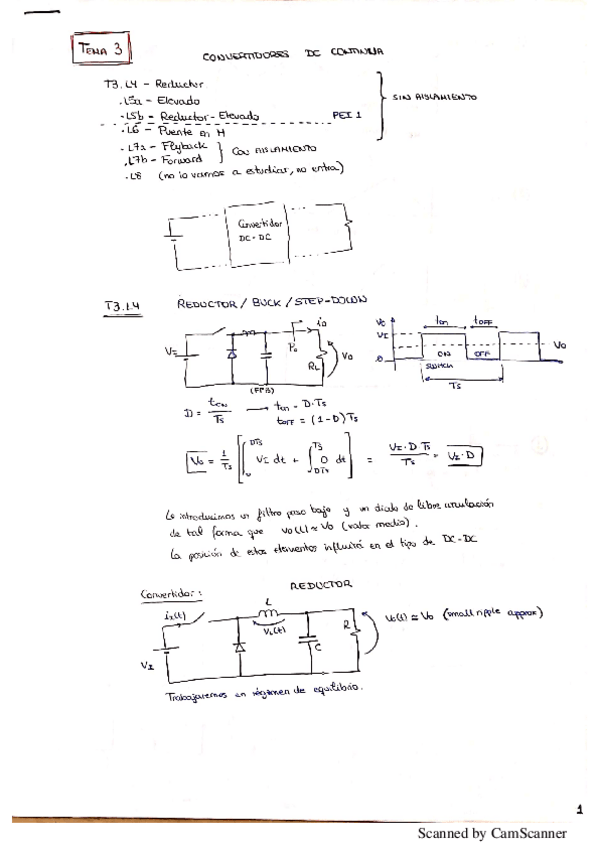 TEMA 3
CONVERTIDORES DC CONTINUA
T3.L4 - Reductor
.L5a - Elevado
.L5b - Reductor - Elevado PEI 1
.L6 - Puente en H
.L7a - Flyback
.L7b - Forward
.L8 (no lo vamos a estudiar, no entra)
SIN AISLAMIENTO
CON AISLAMIENTO
Convertidor
DC - DC
T3.L4 REDUCTOR / BUCK / STEP-DOWN
io
Po
RL
Vo
(FPB)
VI
ton
toff
Vo
ON OFF
SWITCH
Ts
D = ton/Ts → ton = D·Ts
toff = (1-D)Ts
Vo = 1/Ts [∫0^DTs VI dt + ∫DTs^Ts 0 dt] = VI·D Ts/Ts = VI·D
Le introducimos un filtro paso bajo y un diodo de libre circulación
de tal forma que vo(t) ≈ Vo (valor medio).
La posición de estos elementos influirá en el tipo de DC-DC
REDUCTOR
Convertidor:
L
VL(t)
R
C
VI
vo(t) ≈ Vo (small ripple approx)
Trabajaremos en régimen de equilibrio.
1
Scanned by CamScanner